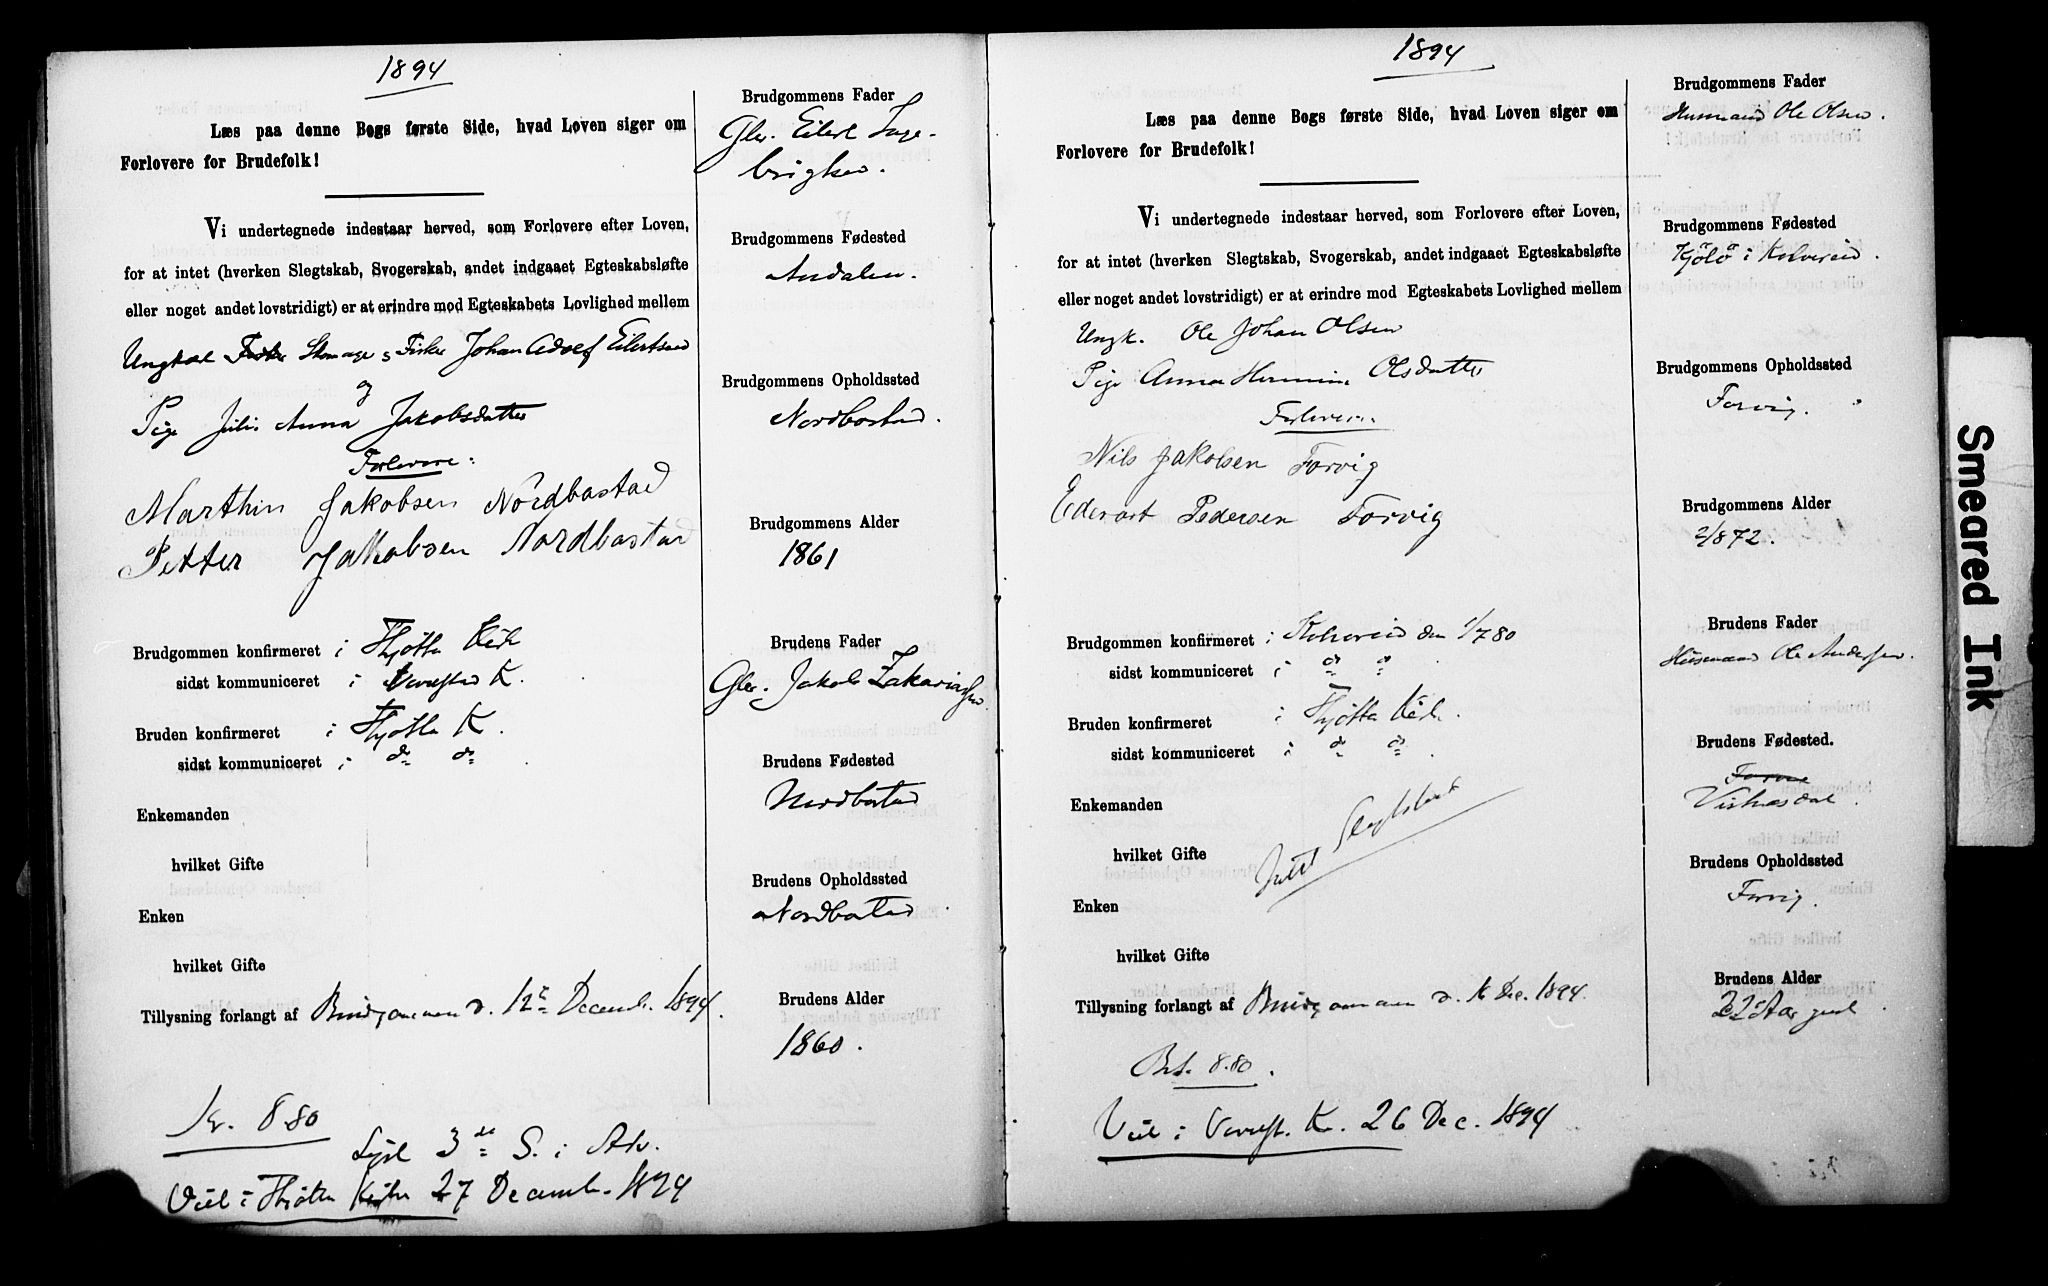 1894
Læs paa denne Bogs første Side, hvad Loven siger om
Forlovere for Brudefolk!
Vi undertegnede indestaar herved, som Forlovere efter Loven,
for at intet (hverken Slegtskab, Svogerskab, andet indgaaet Egteskabsløfte
eller noget andet lovstridigt) er at erindre mod Egteskabets Lovlighed mellem
Ungkal Fisker Johan Adolf Eilertsen
og
Pige Julie Anna Jakobsdatter
Forlovere:
Marthin Jakobsen Nordbastad
Petter Jakobsen Nordbastad
Brudgommen konfirmeret i Thjötta Kirke
sidst kommuniceret i Vevelstad K.
Bruden konfirmeret i Thjötta K.
sidst kommuniceret i do do
Enkemanden
hvilket Gifte
Enken
hvilket Gifte
Tillysning forlangt af Brudgommen d. 12te Decemb. 1894.
Kr. 8.80
Lyst 3de S. i Adv.
Viet i Thjötta Kirke 27 Decemb. 1894
Brudgommens Fader
Gbr. Eilert Inge-
brigtsen.
Brudgommens Fødested
Ausdalen.
Brudgommens Opholdssted
Nordbostad.
Brudgommens Alder
1861
Brudens Fader
Gbr. Jakob Zakariassen.
Brudens Fødested
Nordbostad
Brudens Opholdssted
Nordbostad
Brudens Alder
1860.
1894
Læs paa denne Bogs første Side, hvad Loven siger om
Forlovere for Brudefolk!
Vi undertegnede indestaar herved, som Forlovere efter Loven,
for at intet (hverken Slegtskab, Svogerskab, andet indgaaet Egteskabsløfte
eller noget andet lovstridigt) er at erindre mod Egteskabets Lovlighed mellem
Ungk. Ole Johan Olsen
Pige Anna Hermine Olsdatter
Forlovere:
Nils Jakobsen Forvig
Edevart Pedersen Forvig
Brudgommen konfirmeret i Kolvereid den 1/7 80
sidst kommuniceret i do do
Bruden konfirmeret i Thjötta Kirk.
sidst kommuniceret i do do
Enkemanden
hvilket Gifte
Intet Slegtskab
Enken
hvilket Gifte
Tillysning forlangt af Brudgommen d. 16 Dec. 1894.
Bet. 8.80.
Viet i Vevelst. K. 26 Dec. 1894
Brudgommens Fader
Husmand Ole Olsen.
Brudgommens Fødested
Kjölö i Kolvereid.
Brudgommens Opholdssted
Forvig.
Brudgommens Alder
2/872.
Brudens Fader
Husmand Ole Andersen.
Brudens Fødested.
Visthusdal.
Brudens Opholdssted
Forvig.
Brudens Alder
22 Aar gml.
Smeared Ink